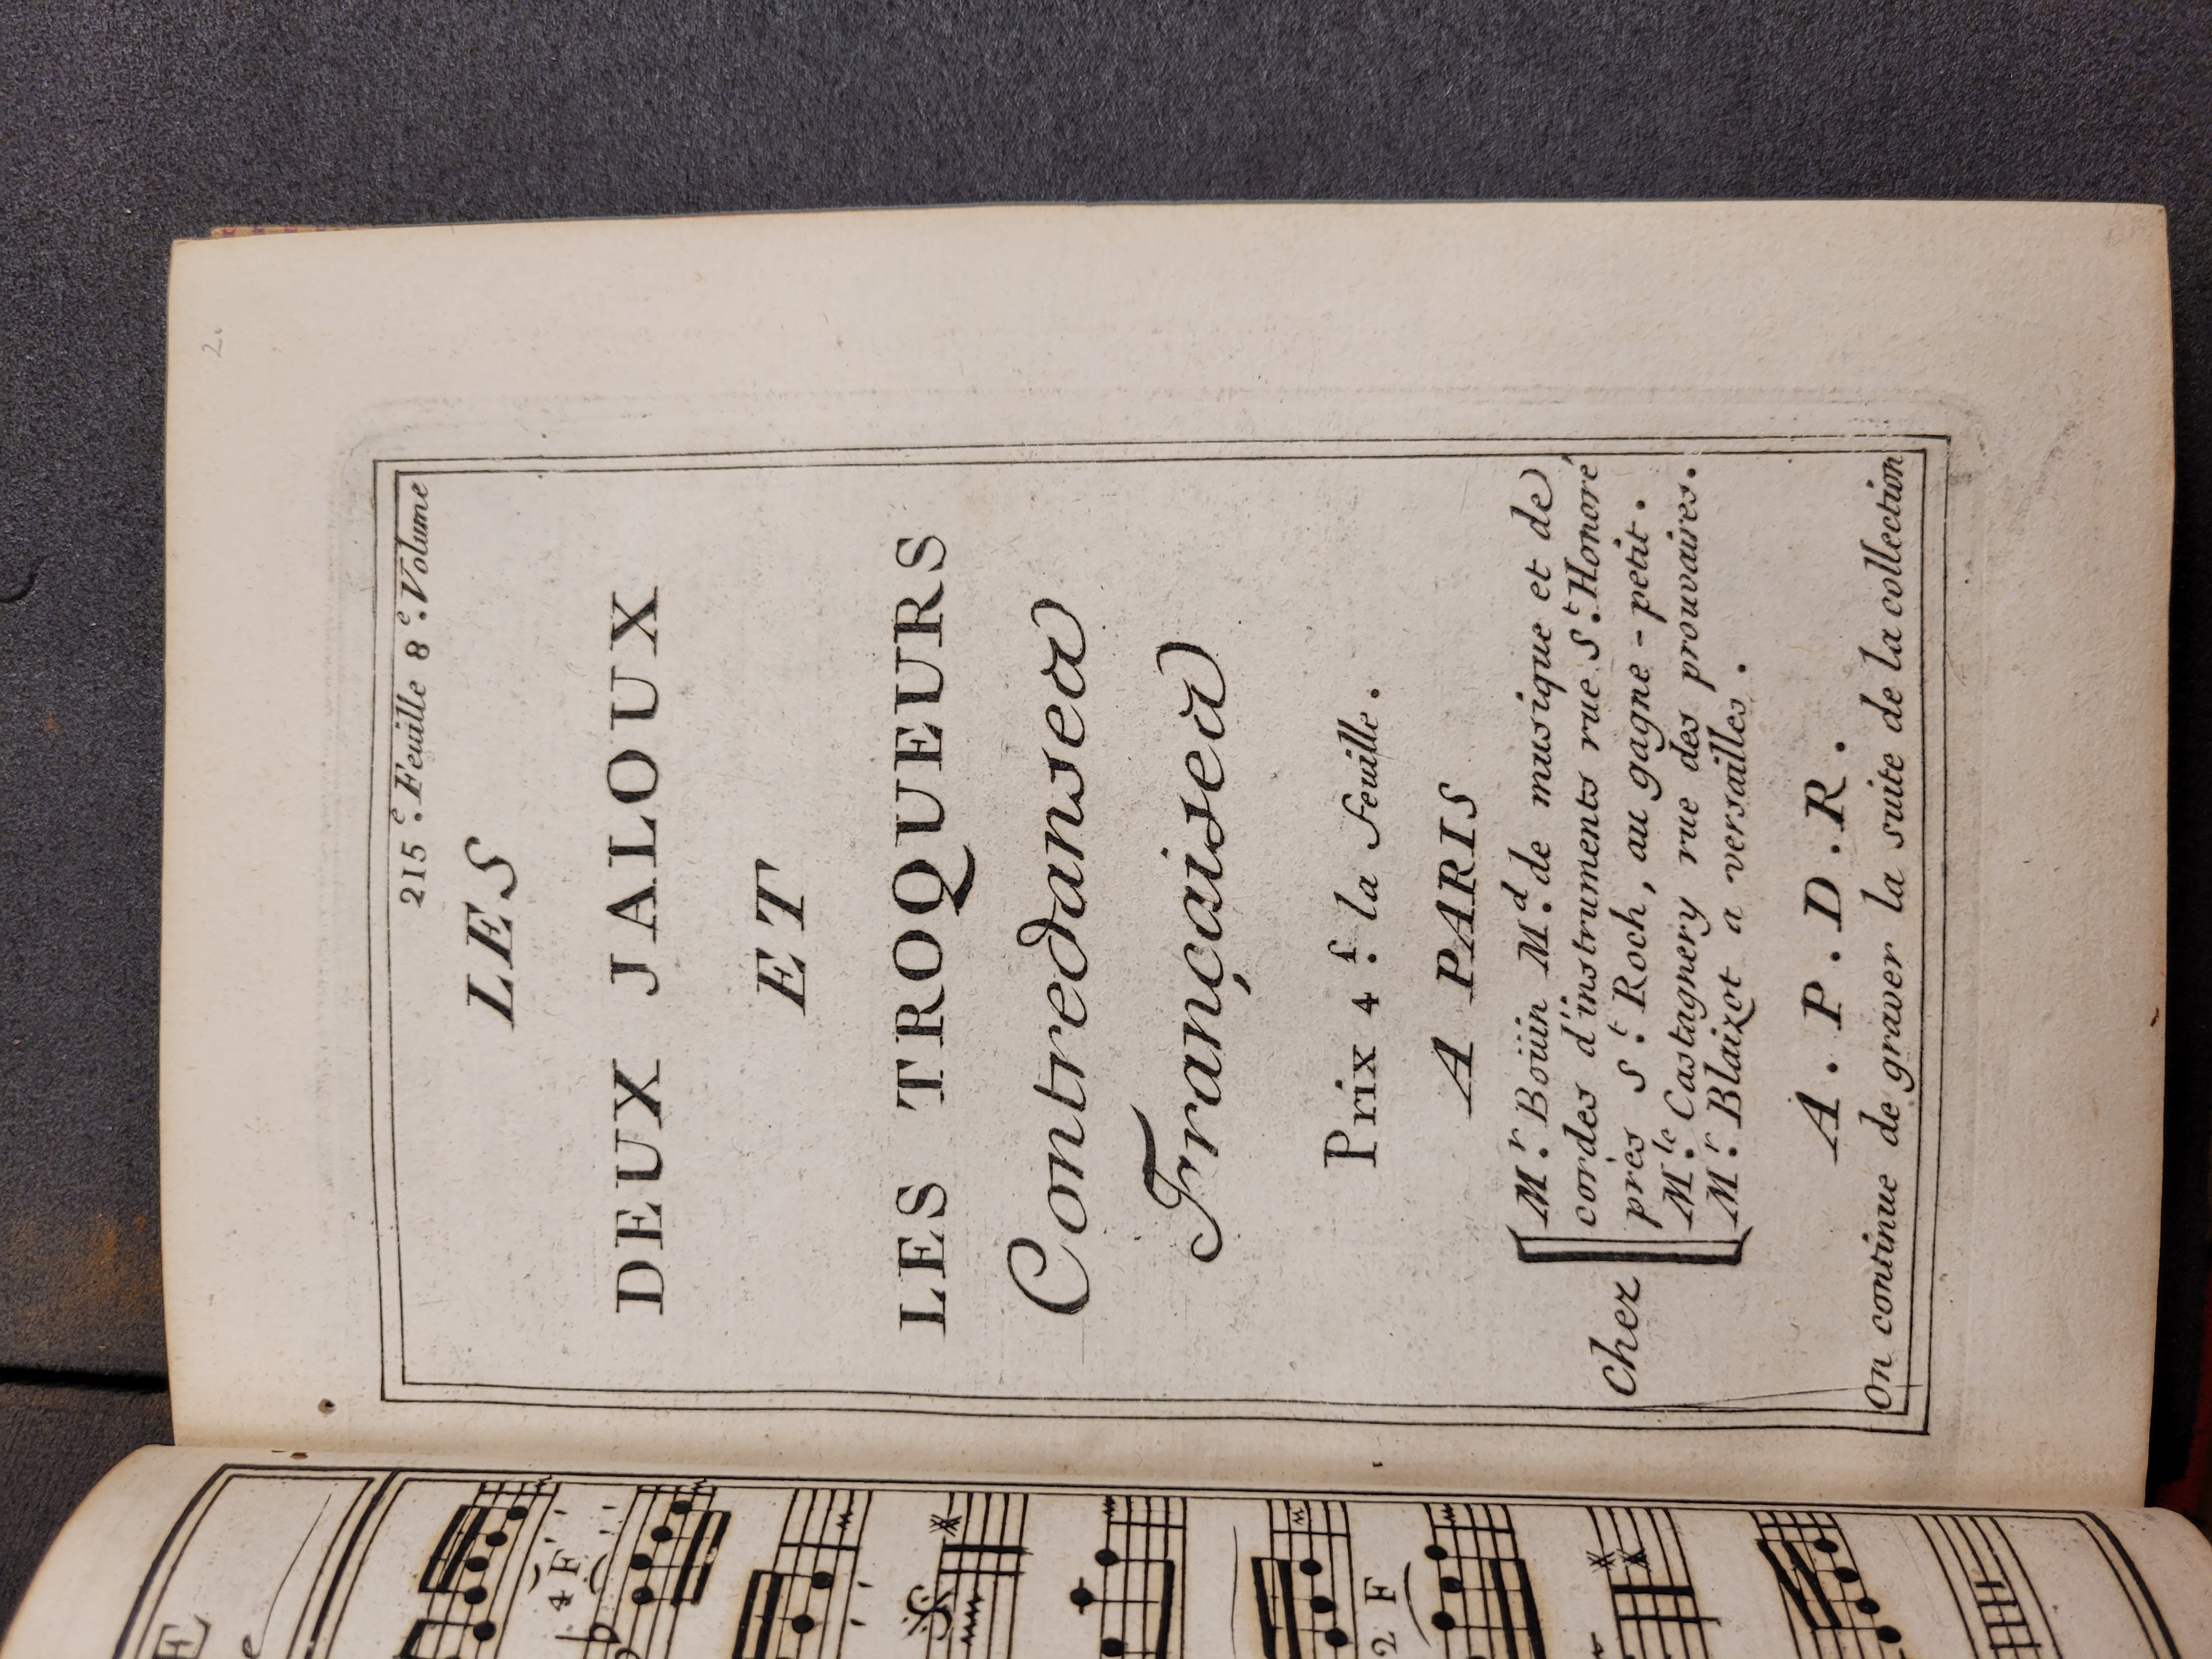 2.
215.e Feuille 8.e Volume
LES
DEUX JALOUX
ET
LES TROQUEURS
Contredanses
Françaises
Prix 4.f la Feuille.
A PARIS
Chez
M.r Boüin M.d de musique et de
cordes d'instruments rue S.t Honoré
près S.t Roch, au gagne-petit.
M.le Castagnery rue des prouvaires.
M.r Blaizot a versailles.
A. P. D. R.
On continue de graver la suite de la collection
4 F
2 F